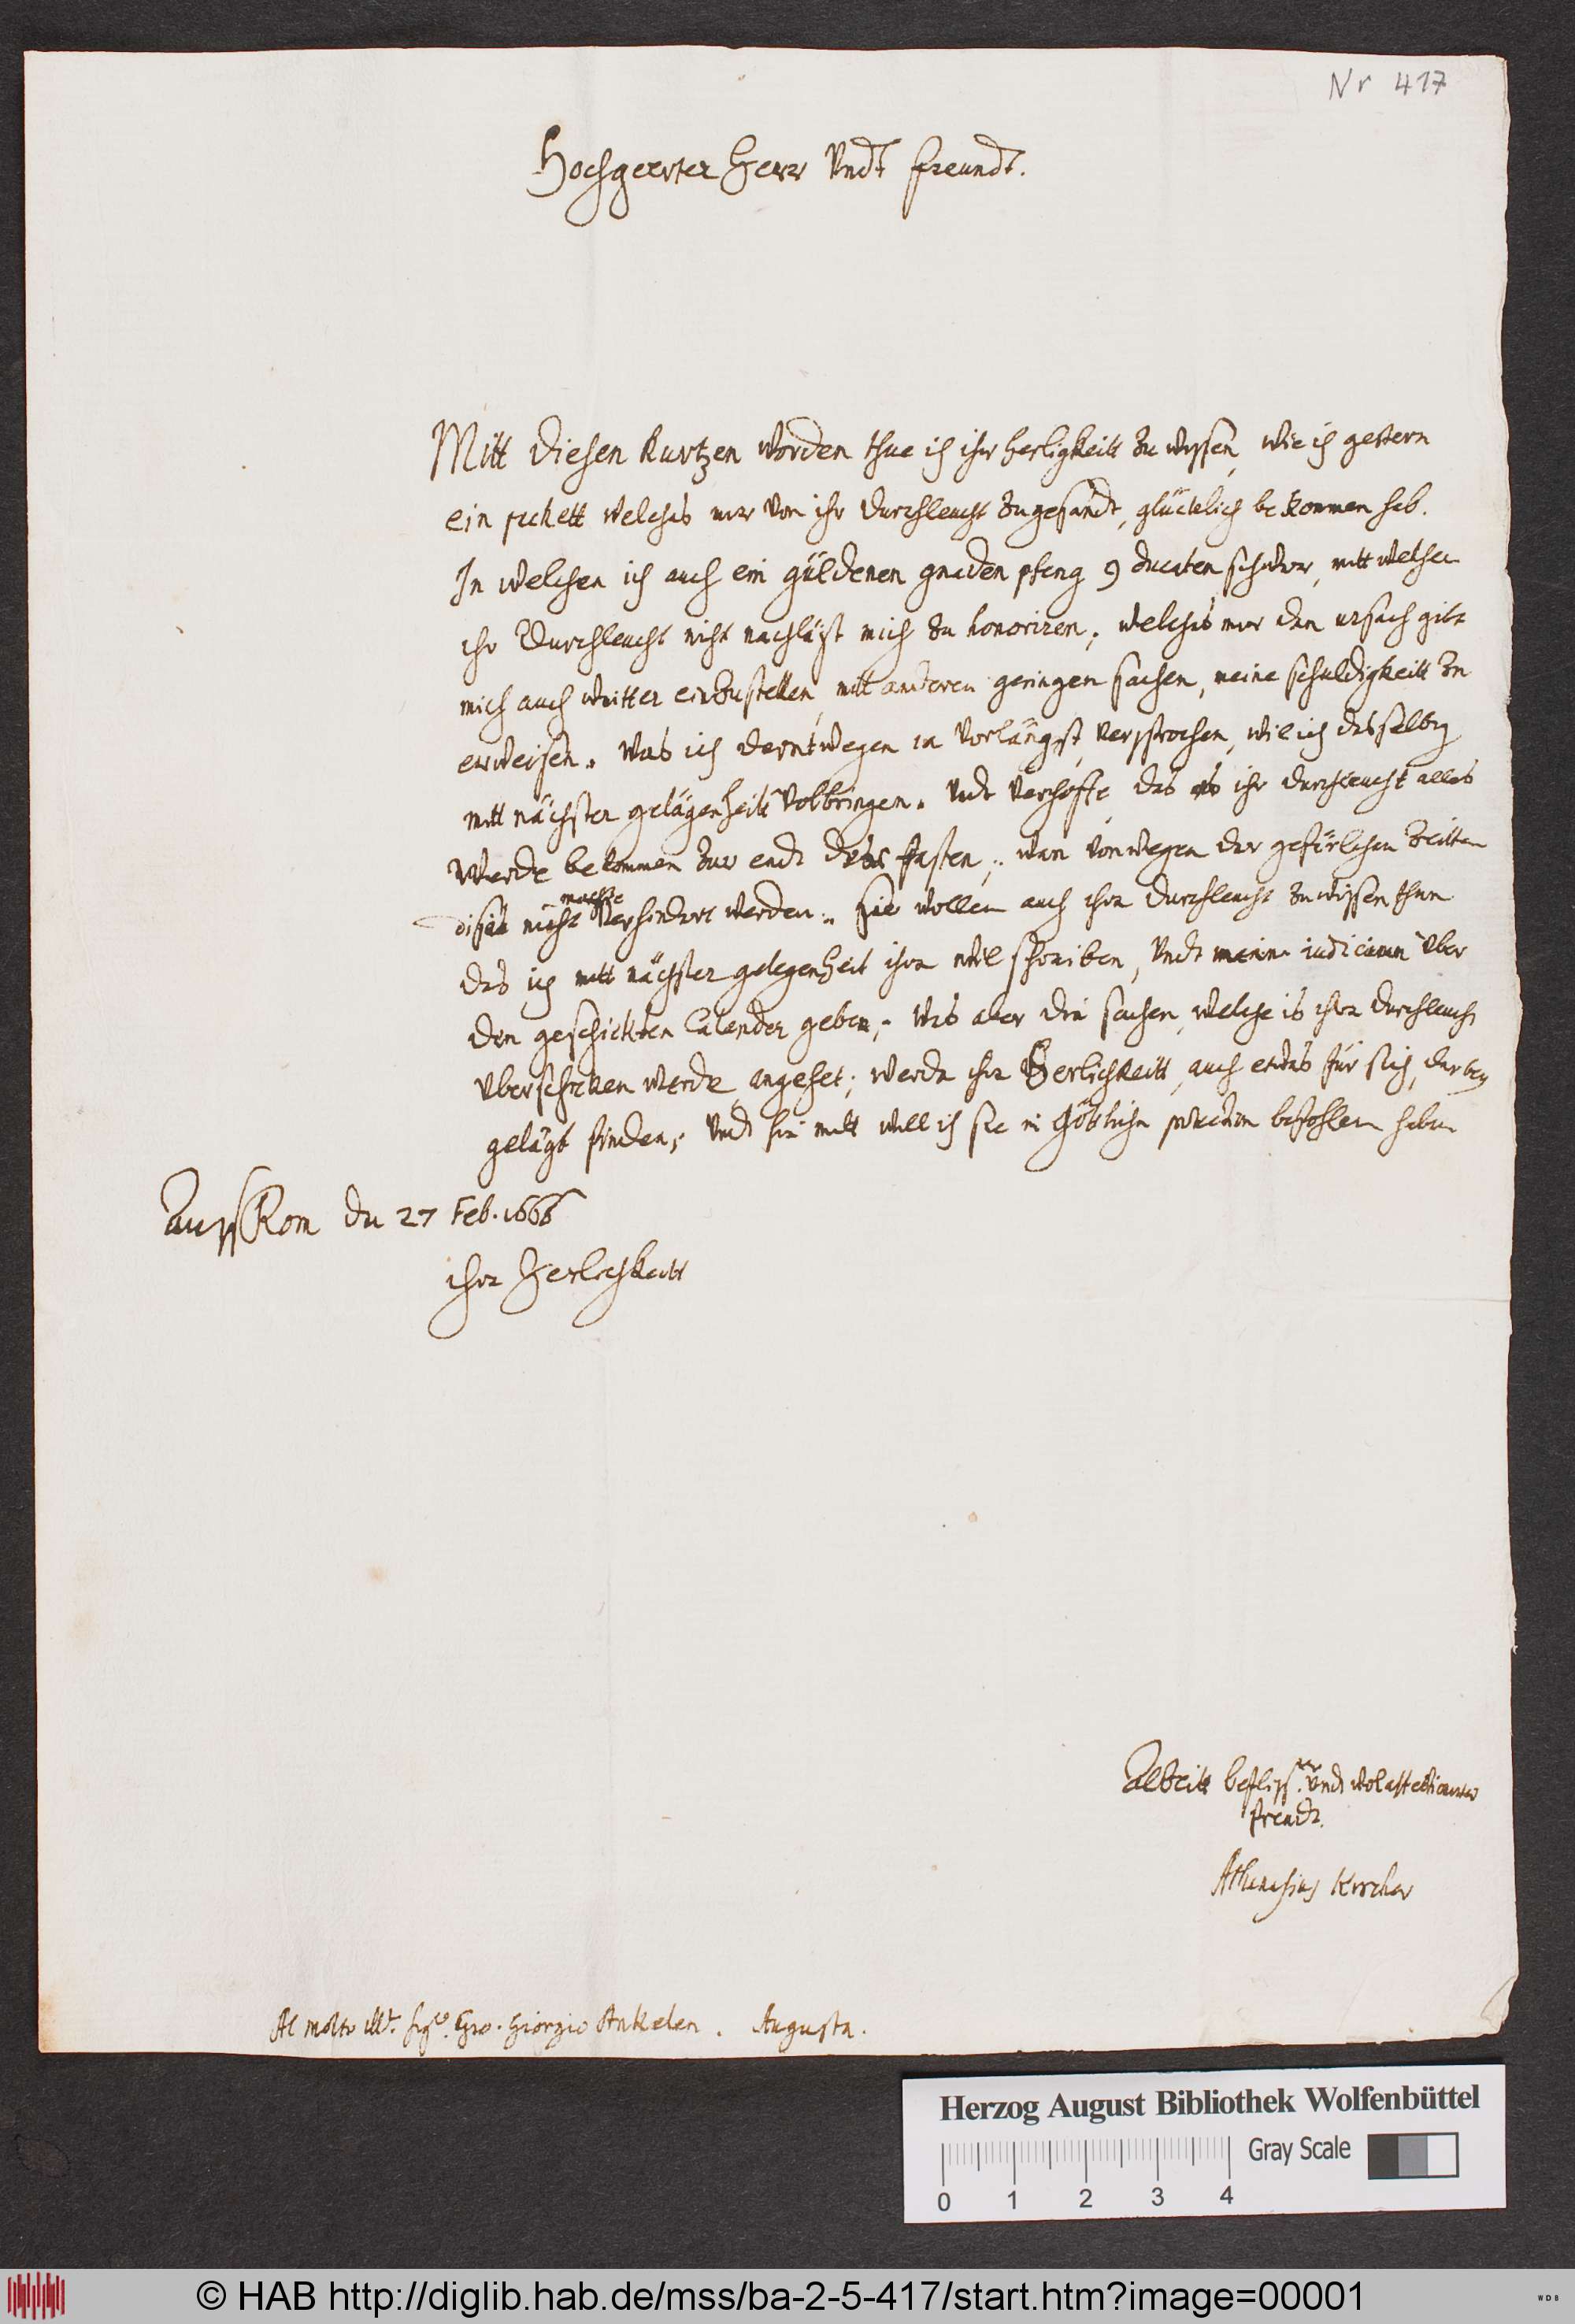 Nr 417
Hochgeerter Herr Undt freundt.
Mitt diesen kurtzen worden thue ich ihr herligkeitt zu wyssen, wie ich gestern
ein pckett welches mir von ihr Durchleucht zugesandt, glücklich bekommen hab.
In welchen ich auch ein güldenen gnaden pfeng 9 ducaten schwer, mitt welchen
ihr Durchleucht nicht nachläszt mich zu honoriren, welches mir dan ursach gibt
mich auch weitter einzustellen, mitt anderen geringen sachen, meine schuldigkeitt zu
erweisen. Was ich derentwegen vorlängst versprochen, wil ich dasselbig
mitt nächster gelägenheitt volbringen. Undt verhoffe, das ihr Durchleucht alles
werde bekommen zur endt der fasten; wan von wegen der gefürlichen Zeitten
nicht mochte verhindert werden. Sie wollen auch ihr Durchleucht zu wissen thun
das ich mitt nächster gelegenheit ihr wil schreiben, undt mein iudicium über
den geschickten Calender geben. Was aber die sachen, welche ihr Durchleucht
überschicken werde, angehet; werden ihr Herlichkeitt, auch etwas für sich, darbey
gelägt finden; Undt hie mitt will ich sie in Götliche protection befohlen haben
Ausz Rom den 27 Feb. 1666
ihr Herlichkeitt
Alzeitt beflisz.ner undt wol affectionirter
freundt.
Athanasius Kircher
Al molto Ill.re sig.re Gio. Giorgio Ankelen. Augusta.
Herzog August Bibliothek Wolfenbüttel
Gray Scale
0 1 2 3 4
© HAB http://diglib.hab.de/mss/ba-2-5-417/start.htm?image=00001
WDB